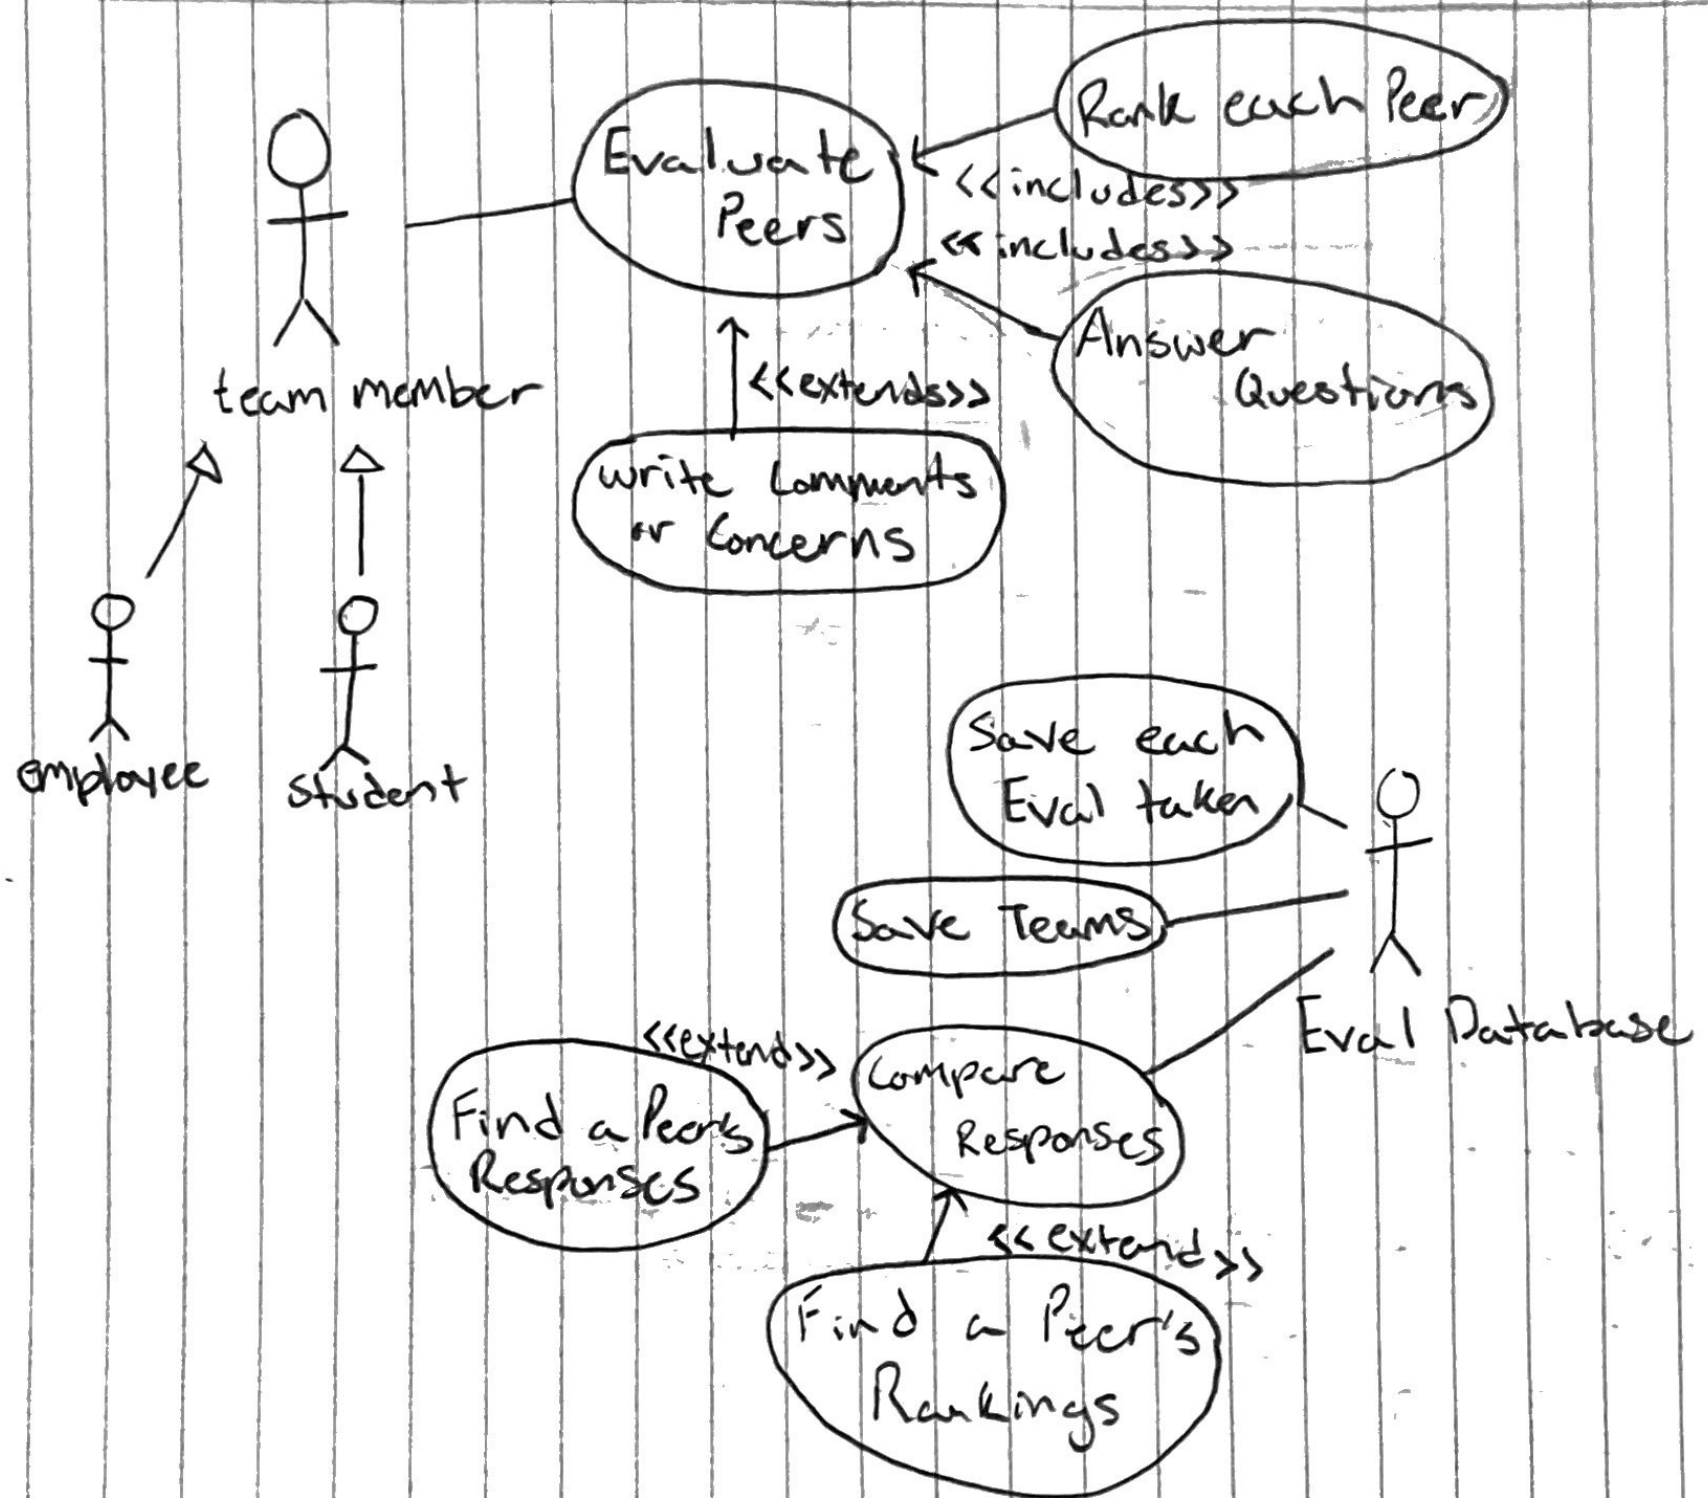 Rank each Peer
Evaluate
Peers
<<includes>>
<<includes>>
Answer
Questions
team member
<<extends>>
write Comments
or Concerns
employee
student
Save each
Eval taken
Save Teams
Eval Database
<<extend>>
Compare
Responses
Find a Peer's
Responses
<<extend>>
Find a Peer's
Rankings